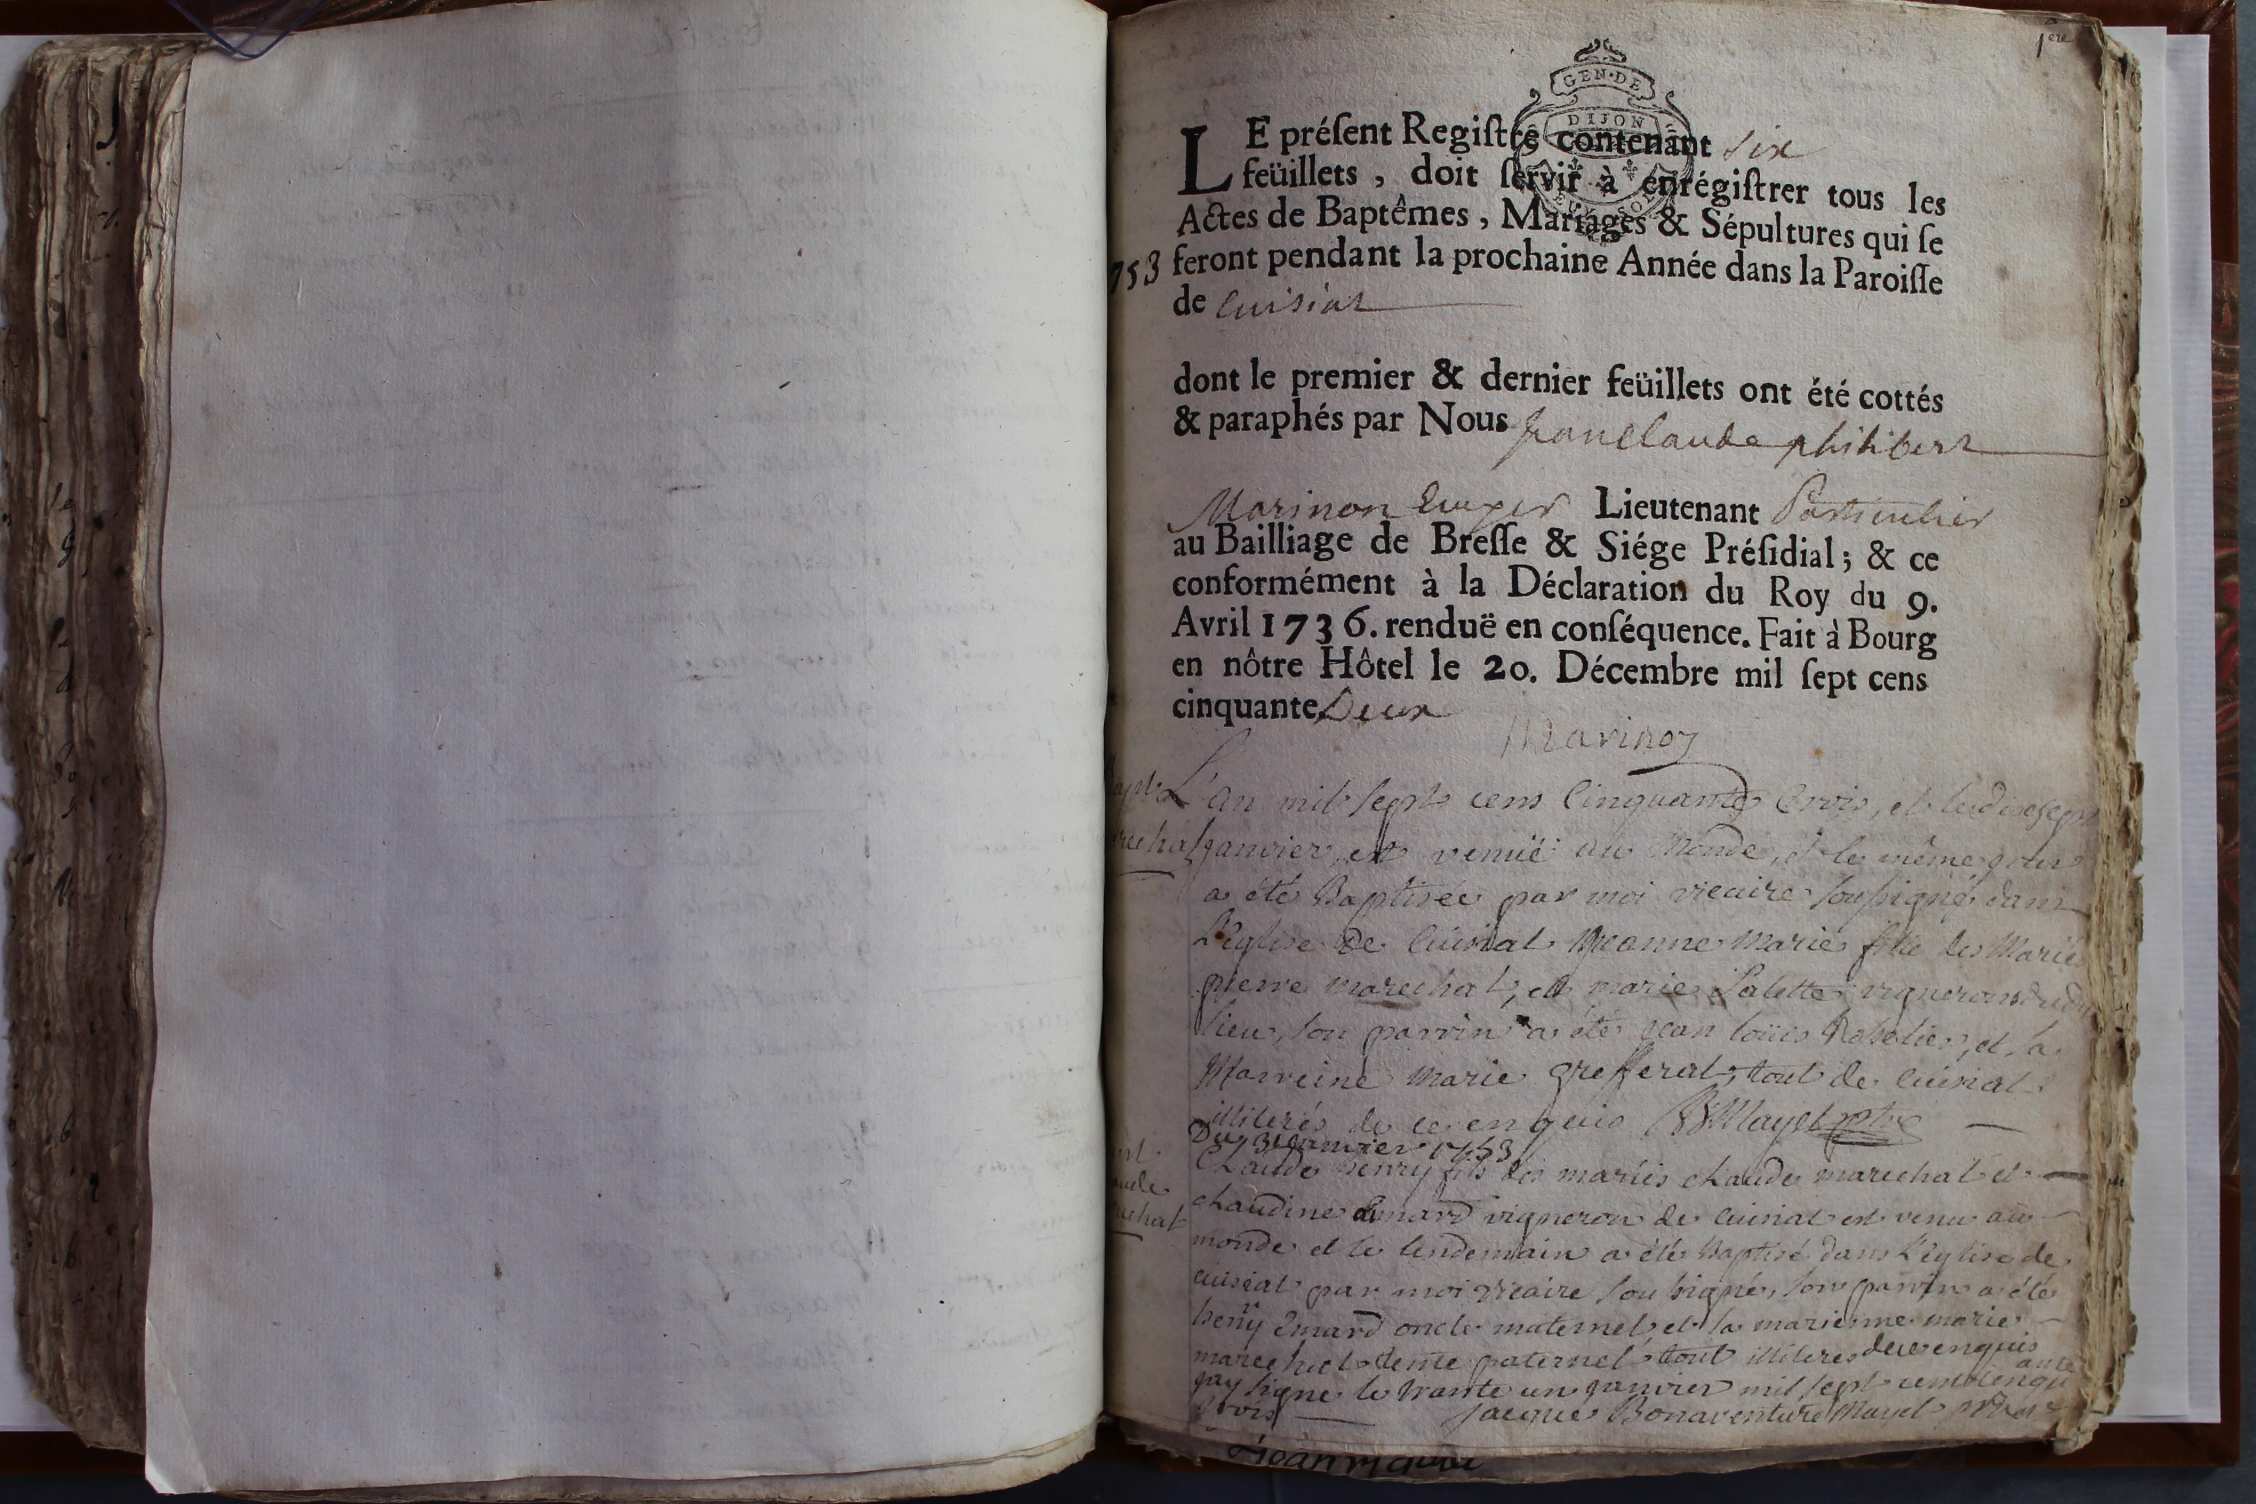 1ere
GEN·DE
DIJON
LE préſent Regiſtre contenant six
feüillets, doit ſervir à enrégiſtrer tous les
Actes de Baptêmes, Mariages & Sépultures qui ſe
753 feront pendant la prochaine Année dans la Paroiſſe
de Cuisiat
dont le premier & dernier feüillets ont été cottés
& paraphés par Nous Jean Claude philibert
Marinon Lieutenant Particulier
au Bailliage de Breſſe & Siége Préſidial; & ce
conformément à la Déclaration du Roy du 9.
Avril 1736. renduë en conſéquence. Fait à Bourg
en nôtre Hôtel le 20. Décembre mil ſept cens
cinquante Deux
Marinon
L'an mil sept cens cinquante trois, et le dix sept
janvier, est venüe au monde, et le même jour
a été Baptisée par moi vicaire soussigné dans
L'eglise de Cuisiat jeanne marie fille des Mariés
pierre marechal, et marie Palette vignerons dudit
lieu, son parrin a été jean loüis , et la
Marreine marie grefferat, tout de Cuisiat
illiterés de ce enquis B Mayet ptre
Du 31 janvier 1753
Claude henry fils des mariés claude marechal et
claudine Emard vigneron de cuisiat est venu au
monde et le lendemain a été Baptisé dans L'eglise de
cuisiat par moi vicaire soussigné, son parrin a été
henry Emard oncle maternel et la marienne marie
marechal tente paternel tout illiteres de ce enquis
jay signé le trante un janvier mil sept cent cinquante
trois jacque Bonaventure Mayet